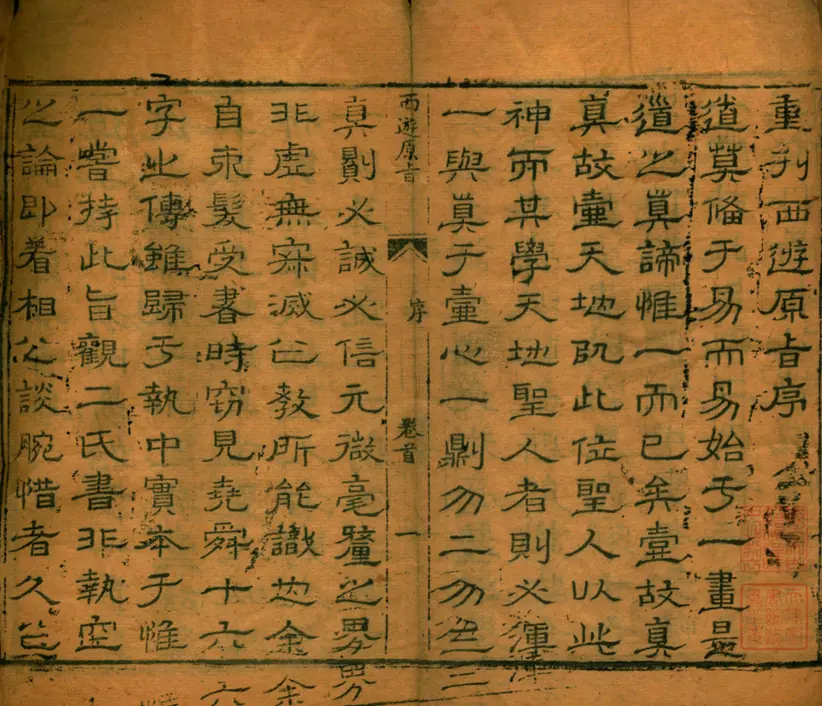 重刋西遊原旨序
道莫僃于易而易始于一畫是
道之眞諦惟一而已矣壹故眞
眞故壹天地此位聖人以此
神而其學天地聖人者則必渾
一與眞于壹心一則勿二勿
西遊原旨 序 卷首 一
眞則必誠必信元微毫釐之界
非虛無寂滅之教所能識也金
自束髮受書時竊見堯舜十六
字之傳雖歸于執中實本于惟
一嘗持此旨觀二氏書非執空
之論即着相之談腕惜者久之